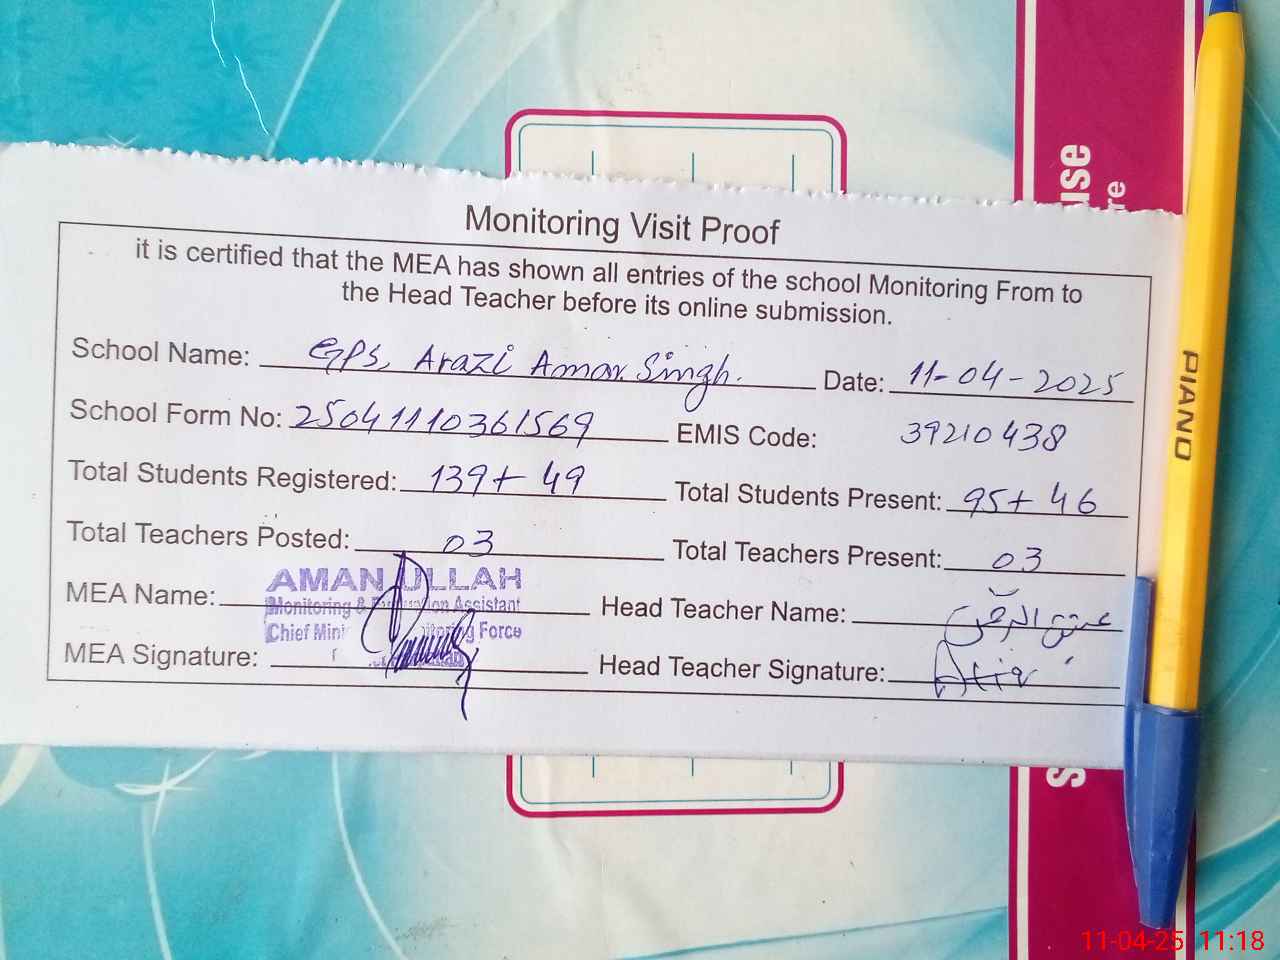 Monitoring Visit Proof
it is certified that the MEA has shown all entries of the school Monitoring From to
the Head Teacher before its online submission.
School Name: GPS, Arazi Amar Singh. Date: 11-04-2025
School Form No: 25041110361569 EMIS Code: 39210438
Total Students Registered: 139+ 49 Total Students Present: 95+ 46
Total Teachers Posted: 03 Total Teachers Present: 03
AMAN ULLAH
MEA Name: Monitoring & Evaluation Assistant Head Teacher Name: عتیق الرحمٰن
Chief Force
MEA Signature: Head Teacher Signature: Atiq
use
re
S
PIANO
11-04-25 11:18